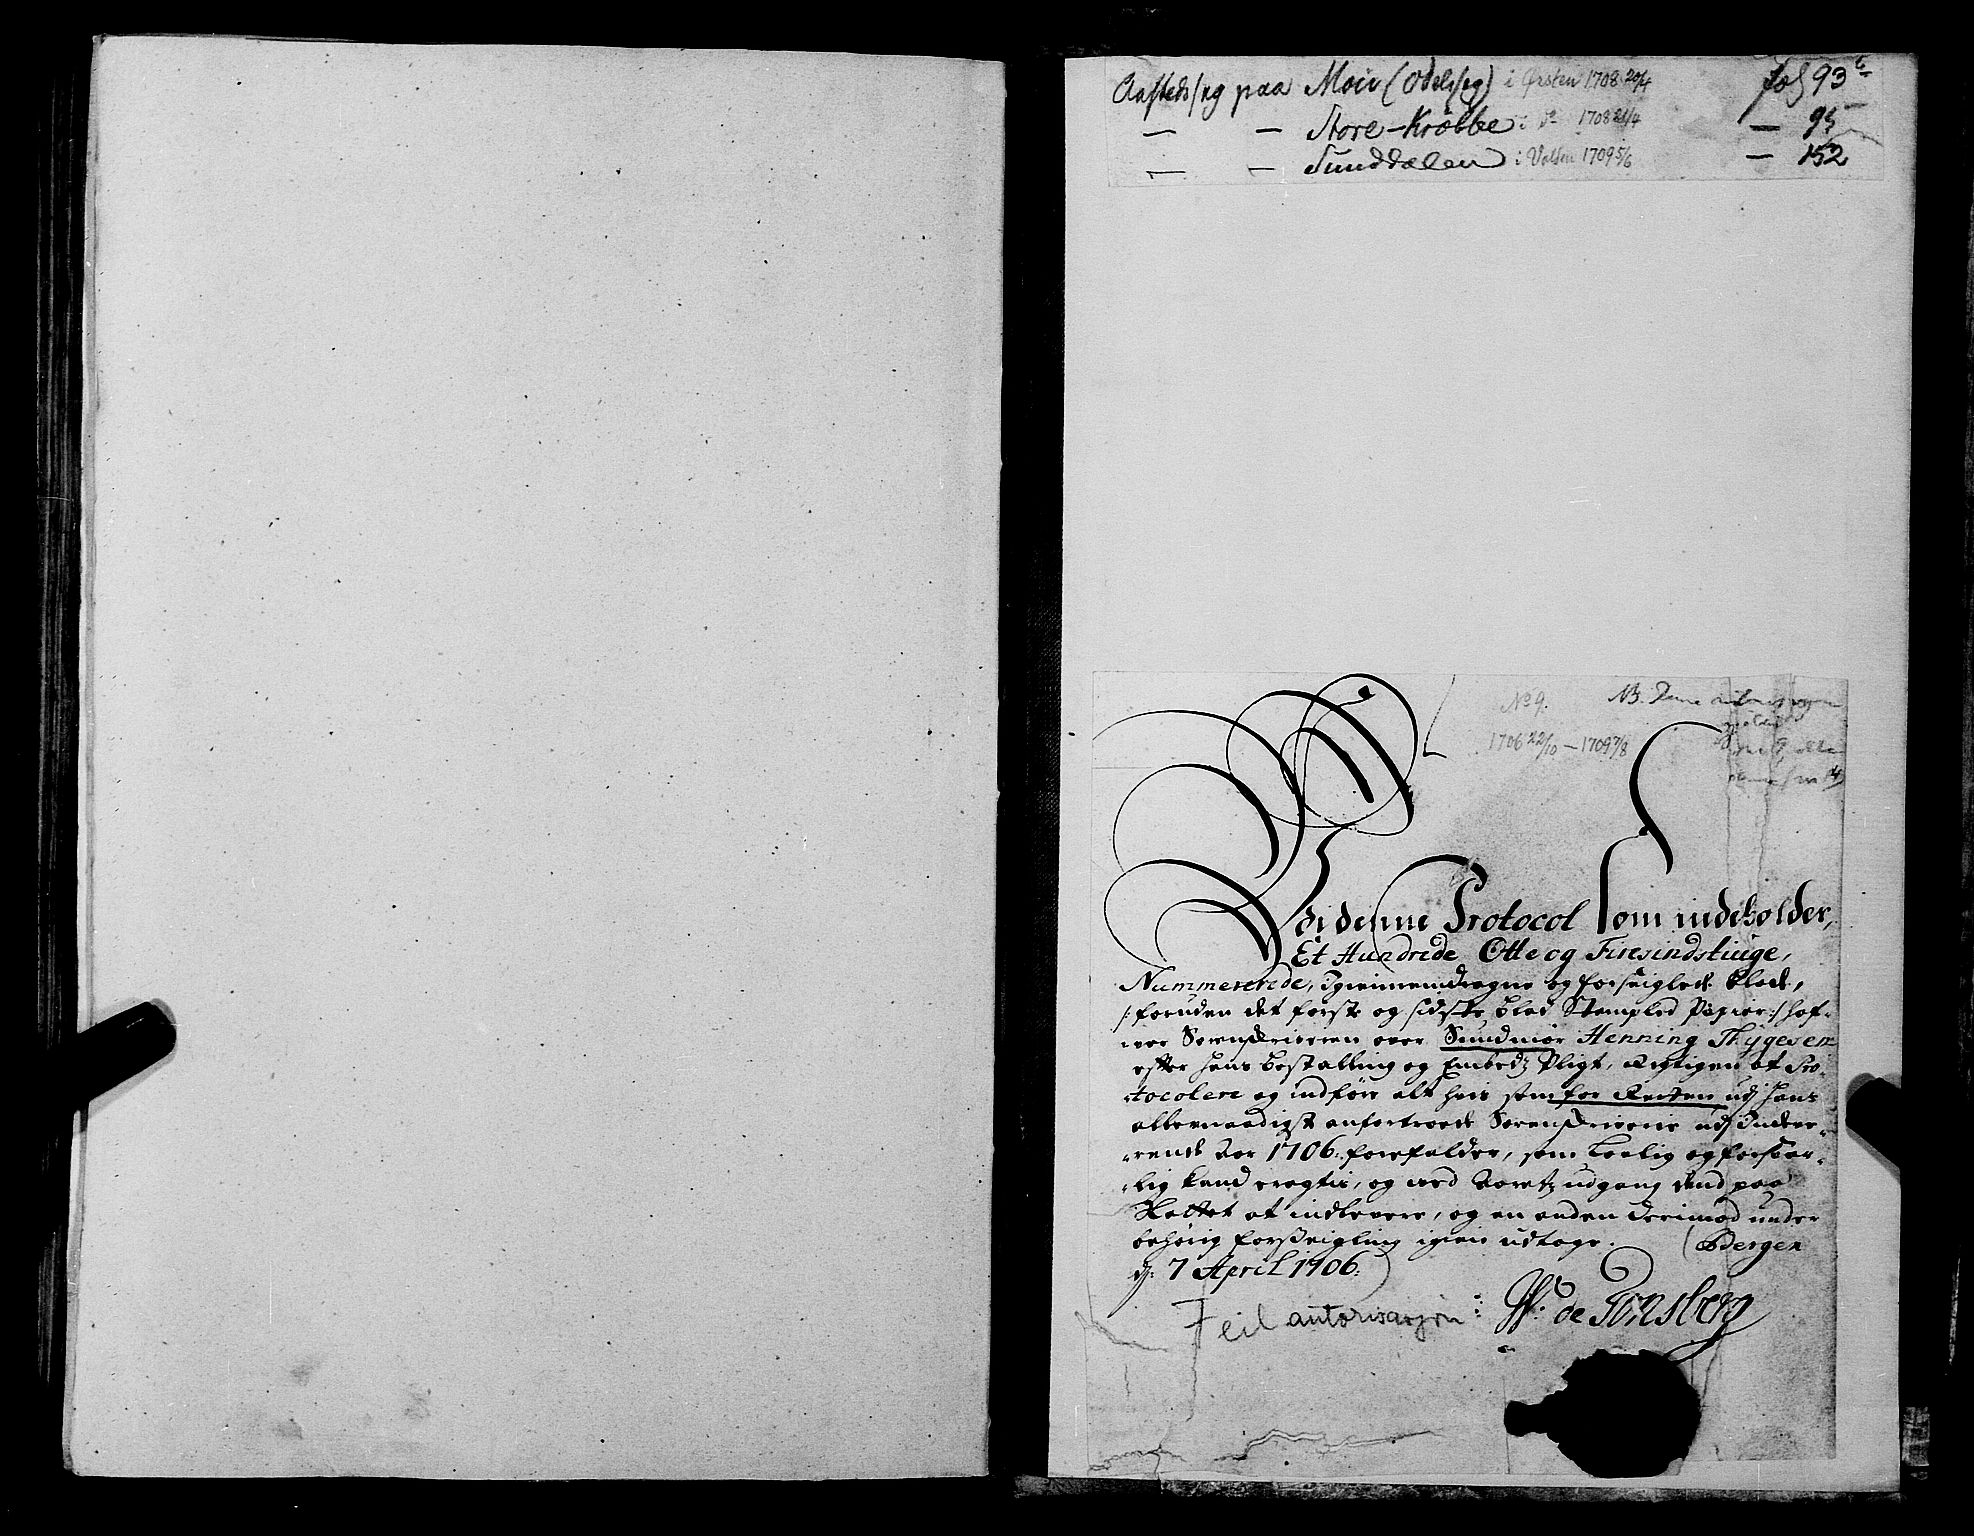 Aastedssag paa Moir (Odelssag) i Ørsten 1708 20/4 fol 93 b
— — Store-Krøbbe i do 1708 21/4 — 95
— — Sunddalen i Volden 1709 5/6 — 152
No 9. NB. Denne
1706 22/10 — 1709 7/8
I denne Protocol som indeholder,
Et Hundrede Otte og Firesindstiuge,
Nummererede, Igiennemdragne og forseiglede blade,
/: foruden det første og sidste blad Stempled Papiir :/ haf-
wer Sorenskriveren over Sundmør Henning Thygesen
efter hans bestalling og Embedz Pligt, Rigtigen at Pro-
tocolere og indføre alt hvis som for Retten udj hans
allernaadigst anfortroede Sorenskriverie udj Indvæ-
rende Aar 1706. forefalder, som lovlig og forsvar-
lig kand eragtis, og ved Aaretz udgang dend paa
at indlevere, og en anden derimod under
behørig forseigling igien udtage. Bergen
d. 7 April 1706.
Feil autorisasjon: W. de Tonsberg